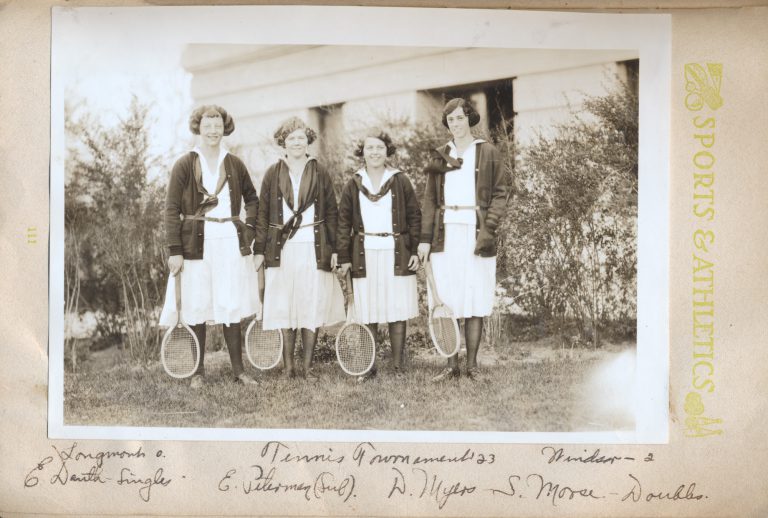 SPORTS & ATHLETICS
111
Longmont 0. Tennis Tournement '23 Windsor - 2
E. Danta - Singles - E. Peterman (Sub). D. Myers - S. Morse - Doubles.